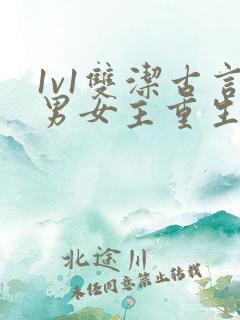 1v1雙潔古言
男女主重生
北途川
未经同意禁止转载